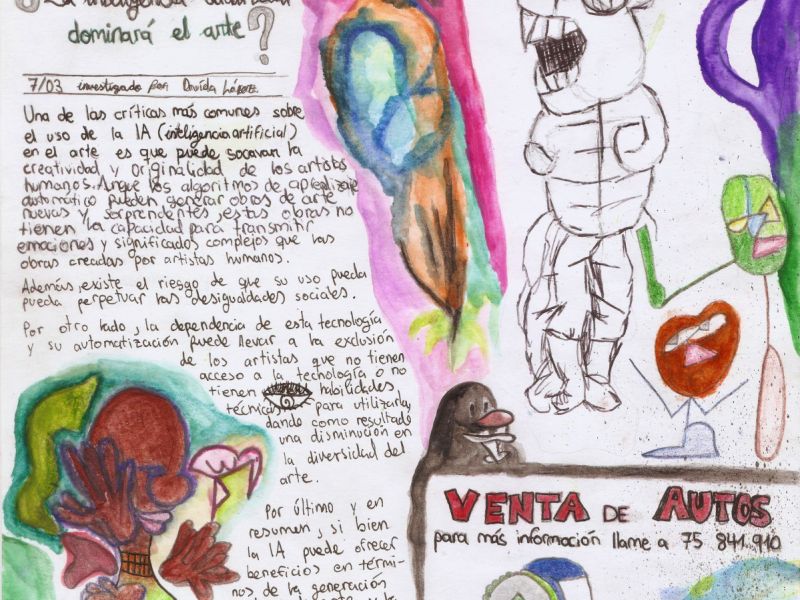 ¿La inteligencia
dominará el arte?
7/03 investigado por Davida
Una de las críticas más comunes sobre
el uso de la IA (inteligencia artificial)
en el arte es que puede socavar la
creatividad y originalidad de los artistas
humanos. Aunque los algoritmos de aprendizaje
automático pueden generar obras de arte
nuevas y sorprendentes, estas obras no
tienen la capacidad para transmitir
emociones y significados complejos que las
obras creadas por artistas humanos.
Además, existe el riesgo de que su uso pueda
pueda perpetuar las desigualdades sociales.
Por otro lado, la dependencia de esta tecnología
y su automatización puede llevar a la exclusión
de los artistas que no tienen
acceso a la tecnología o no
tienen habilidades
técnicas para utilizarla,
dando como resultado
una disminución en
la diversidad del
arte.
Por último y en
resumen, si bien
la IA puede ofrecer
beneficios en térmi-
nos, de la generación
VENTA DE AUTOS
para más información llame a 75 841 910